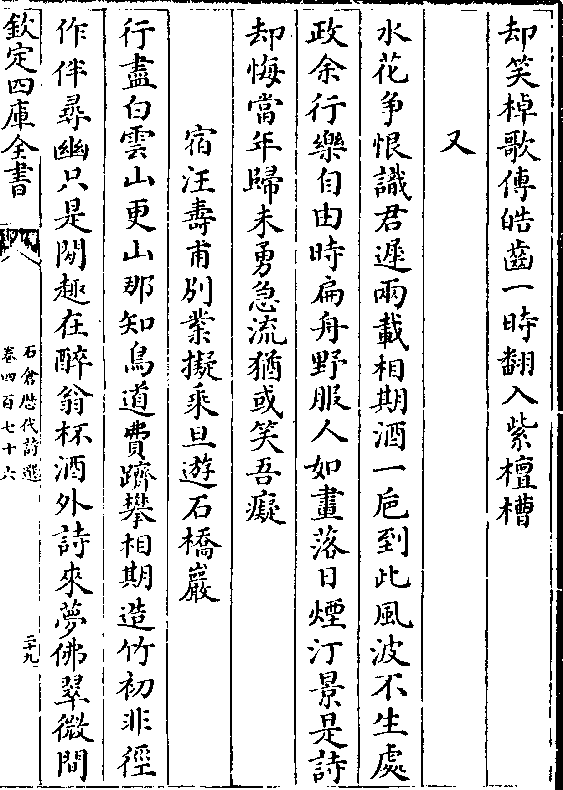 却笑棹歌傳皓齒一時翻入紫檀槽
又
水花爭恨識君遲兩載相期酒一巵到此風波不生處
政余行樂自由時扁舟野服人如畫落日煙汀景是詩
却悔當年歸未勇急流猶或笑吾癡
宿汪壽甫別業擬乘旦遊石橋巖
行盡白雲山更山那知鳥道費躋攀相期造竹初非徑
作伴尋幽只是閒趣在醉翁杯酒外詩來夢佛翠微間
欽定四庫全書
石倉歷代詩選
卷四百七十六
二十九